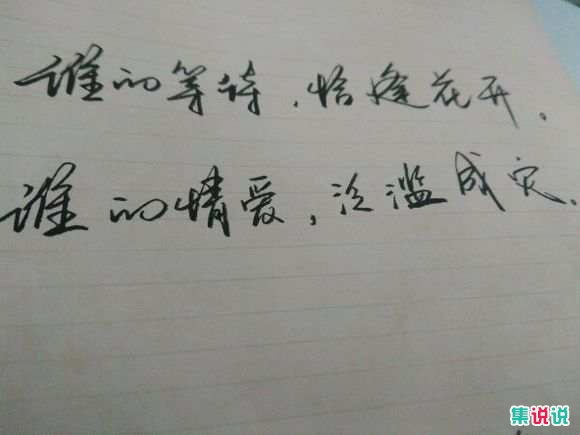 谁的等待，恰逢花开。
谁的情爱，泛滥成灾。
集说说